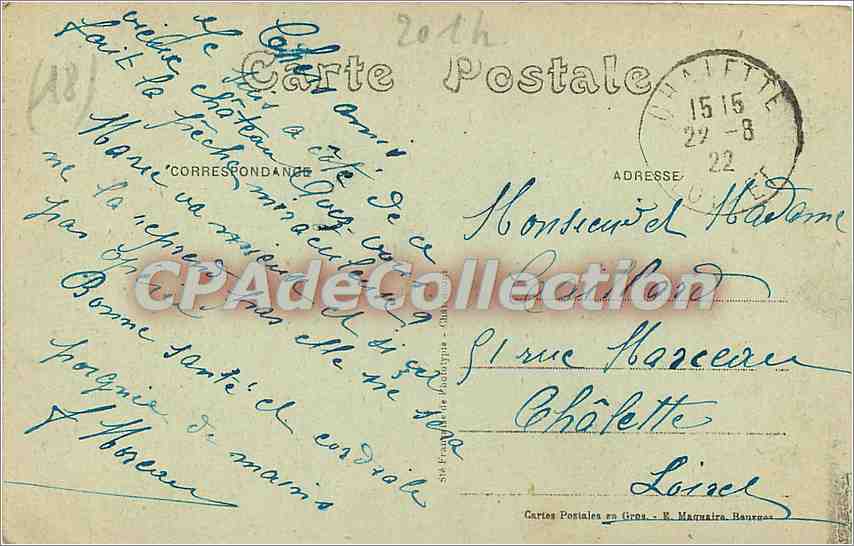 20 1h
(18)
Carte Postale
CORRESPONDANCE
ADRESSE
CHALETTE
15 15
22 -8
22
LOIRET
Chers amis
Je suis a côté de ce
vieux château Avez vous
fait la pêche miraculeuse
Marie va mieux et si ça
ne la reprend pas elle ne sera
pas opéré
Bonne santé et cordiale
poignée de mains
Moreau
Monsieur et Madame
51 rue Marceau
Châlette
Loiret
CPAdeCollection
Sté Française de Phototypie -
Cartes Postales en Gros. - E. Maquaire, Bourges